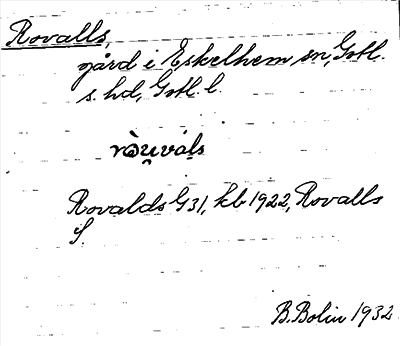 Rovalls,
gård i Eskelhem sn, Gotl.
s. hd, Gotl. l.
ròu̯vá̱ls
Rovalds G31, kb 1922, Rovalls
S.
B. Bolin 1932